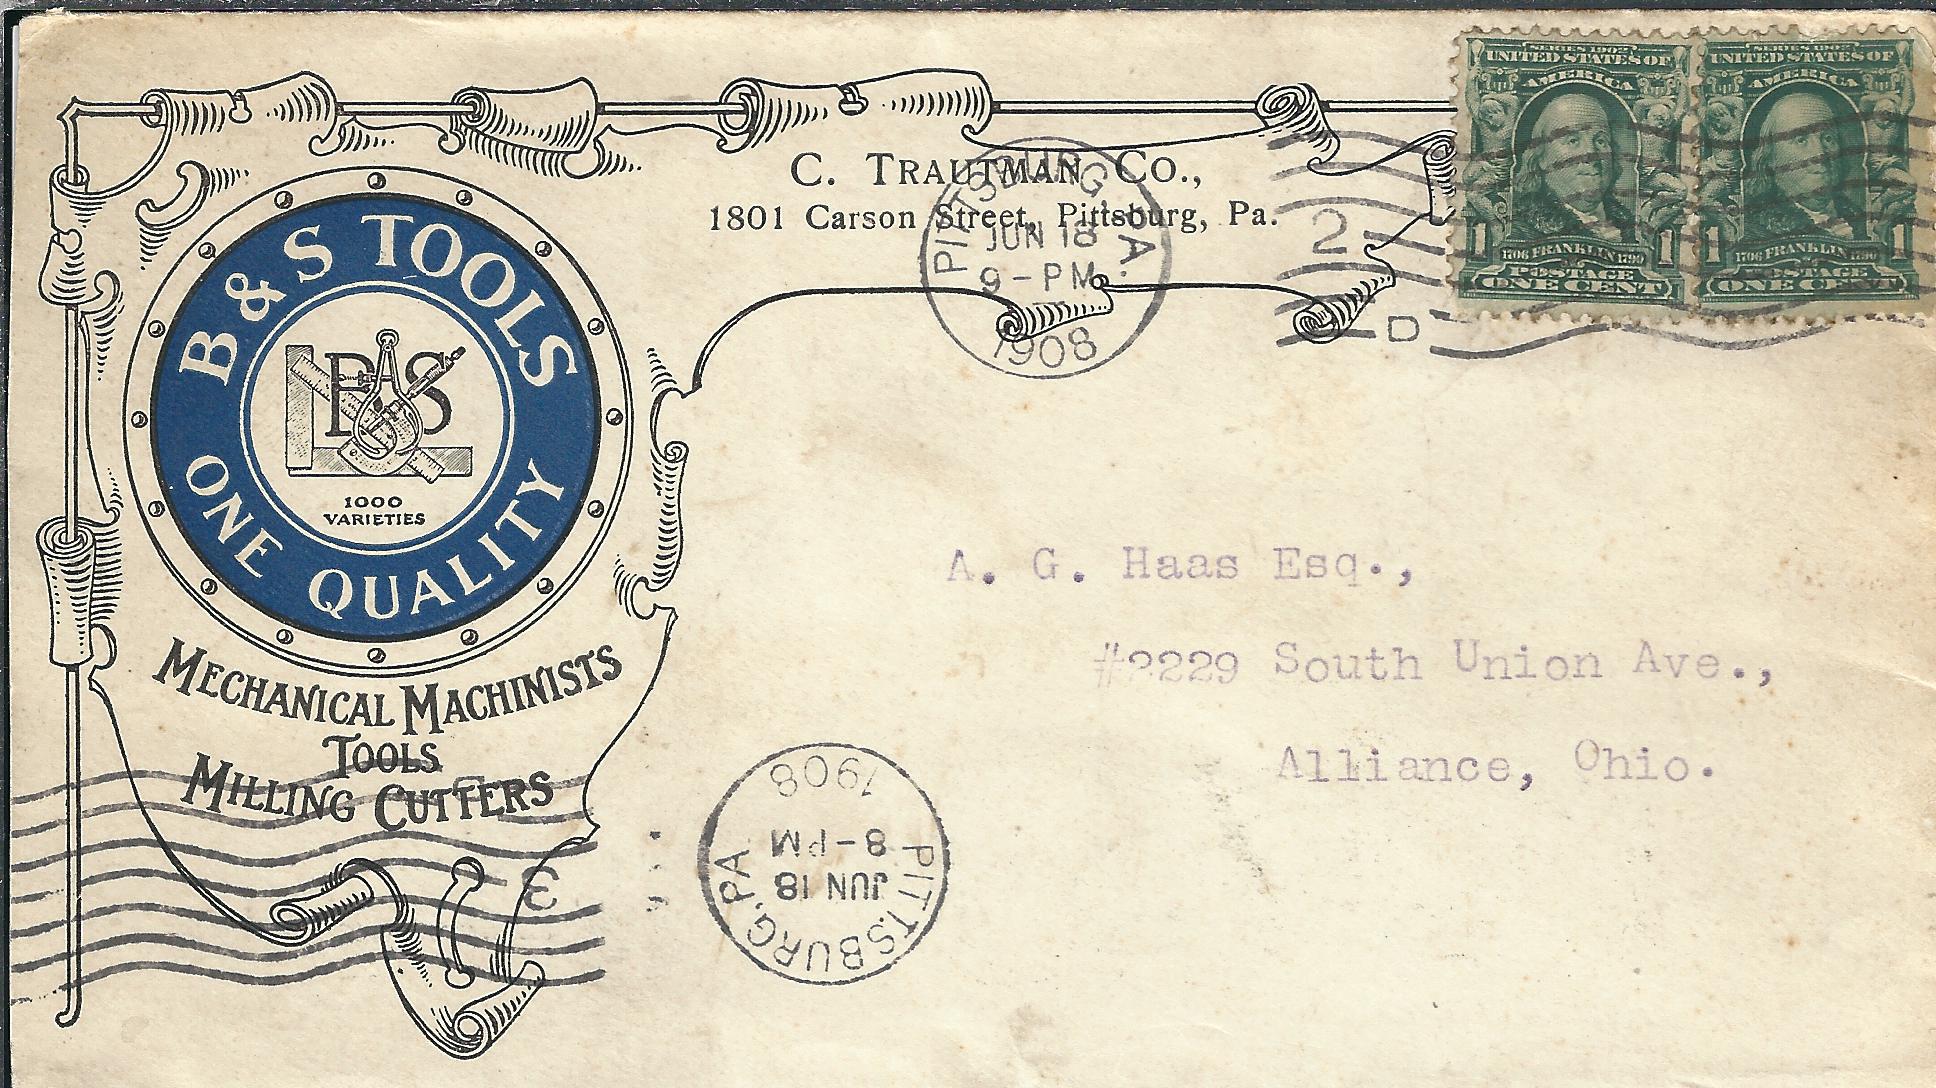 SERIES 1902
UNITED STATES OF
AMERICA
1 1706 FRANKLIN 1790 1
POSTAGE
ONE CENT
SERIES 1902
UNITED STATES OF
AMERICA
1 1706 FRANKLIN 1790 1
POSTAGE
ONE CENT
C. TRAUTMAN CO.,
1801 Carson Street, Pittsburg, Pa.
PITTSBURG, PA.
JUN 18
9-PM
1908
2
D
B & S TOOLS
BS
1000
VARIETIES
ONE QUALITY
MECHANICAL MACHINISTS
TOOLS
MILLING CUTTERS
A. G. Haas Esq.,
#2229 South Union Ave.,
Alliance, Ohio.
PITTSBURG, PA
JUN 18
8-PM
1908
3